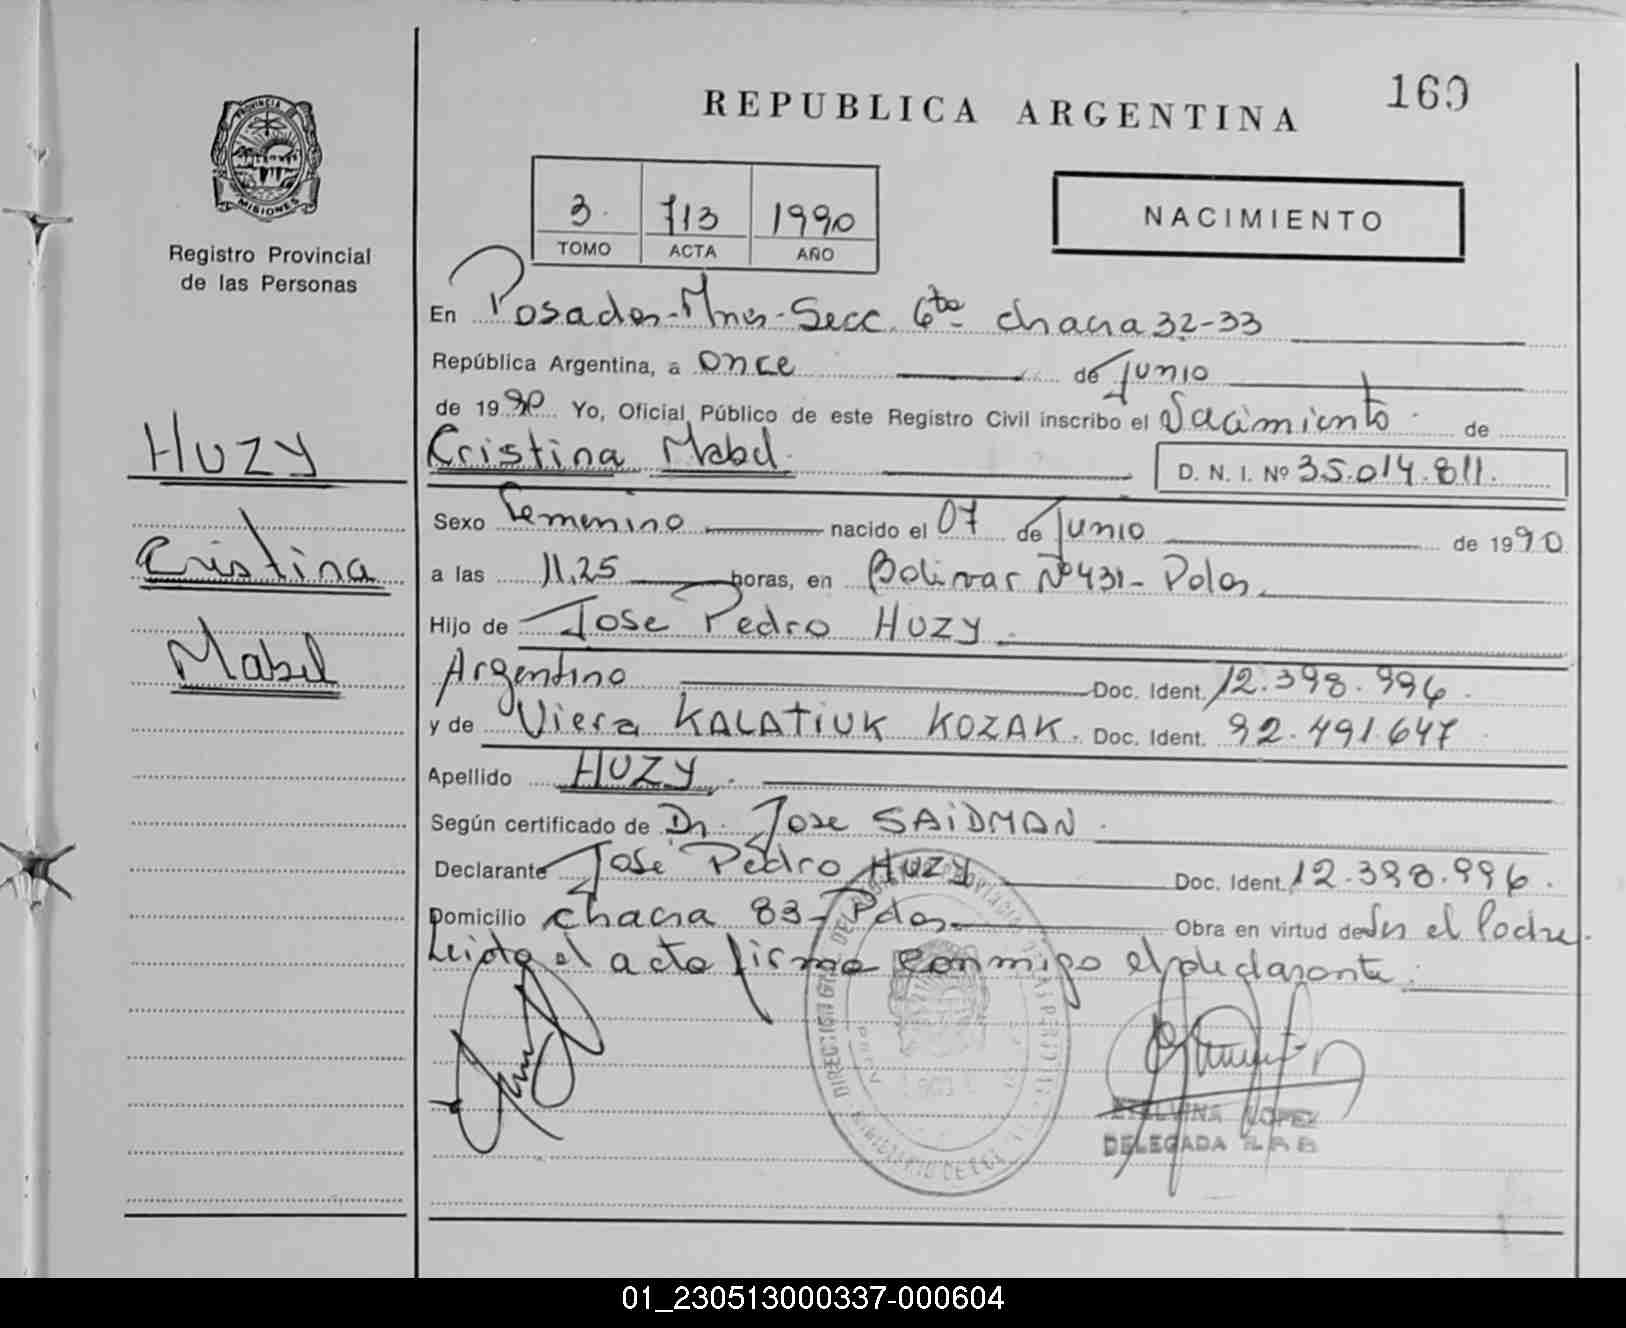 160
REPUBLICA ARGENTINA
PROVINCIA DE
MISIONES
Registro Provincial
de las Personas
3. 713 1990
TOMO ACTA AÑO
NACIMIENTO
En Posadas-Mnes-Secc. 6ta chacra 32-33
República Argentina, a once de Junio
de 1990 Yo, Oficial Público de este Registro Civil inscribo el Nacimiento de
HUZY
Cristina Mabel. D. N. I. Nº 35.014.811.
Sexo Femenino nacido el 07 de Junio de 1990
Cristina
a las 11.25 horas, en Bolivar Nº 431- Pdas.
Hijo de Jose Pedro HUZY.
Mabel
Argentino Doc. Ident. 12.398.996.
y de Viera KALATIUK KOZAK. Doc. Ident. 92.491.647
Apellido HUZY.
Según certificado de Dr. Jose SAIDMAN.
Declarante José Pedro HUZY Doc. Ident. 12.398.996.
Domicilio chacra 83-Pdas. Obra en virtud de Ser el Padre.
Leida el acta firma conmigo el declarante.
DIRECCION
MINISTERIO DE
ETELVINA LOPEZ
DELEGADA
01_230513000337-000604